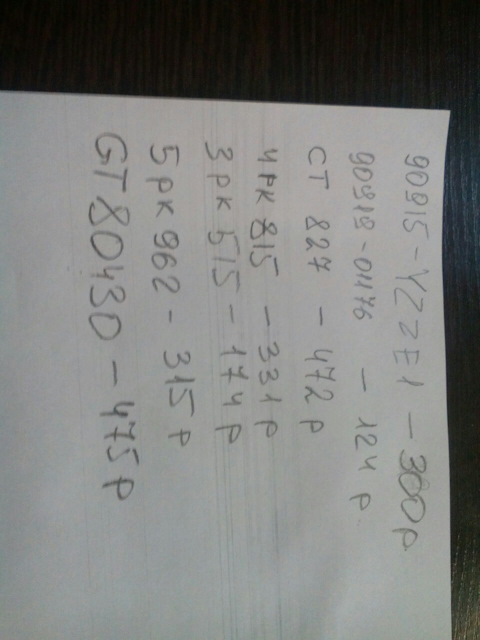 90915-YZZE1 - 300р
90919-01176 - 124р
CT 827 - 472р
4PK 815 - 331р
3PK 515 - 174р
5PK 962 - 315р
GT80430 - 475р